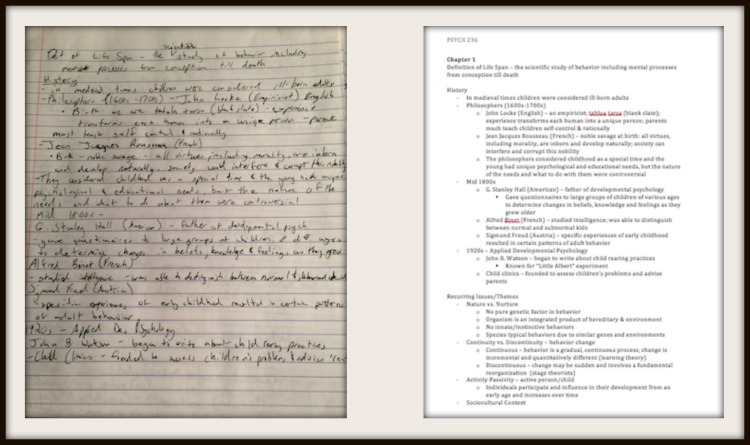 scientific
Def of Life Span - the study of behavior including
mental processes from conception till death
History
- in medieval times children were considered ill-born adults
- Philosophers (1600s - 1700s) - John Locke (Empiricist) English
must teach self control & rationally
- Jean Jacques Rousseau (French)
• Birth - noble savage - all virtues, including morality, are inborn
and develop naturally, society will interfere & corrupt this nobility
- They considered childhood as special time & the young had unique
psychological & educational needs, but the nature of the
needs and what to do about them were controversial
Mid 1800s -
G. Stanley Hall (American) - Father of developmental psych
- gave questionnaires to large groups of children of diff ages
to determine changes in beliefs, knowledge & feelings as they grow
Alfred Binet (French)
- studied intelligence - was able to distinguish between normal &
(Austria)
specific experiences of early childhood resulted in certain patterns
of adult behavior
1920s - Applied Dev Psychology
John B Watson - began to write about child rearing practices
- Child Clinics - founded to assess children's problems & advise
PSYCH 236
Chapter 1
Definition of Life Span – the scientific study of behavior including mental processes
from conception till death
History
- In medieval times children were considered ill-born adults
- Philosophers (1600s-1700s)
o John Locke (English) – an empiricist; tabula rasa (blank slate);
experience transforms each human into a unique person; parents
much teach children self-control & rationale
o Jean Jacques Rousseau (French) – noble savage at birth: all virtues,
including morality, are inborn and develop naturally; society can
interfere and corrupt this nobility
o The philosophers considered childhood as a special time and the
young had unique psychological and educational needs, but the nature
of the needs and what to do with them were controversial
- Mid 1800s
o G. Stanley Hall (American) – father of developmental psychology
▪ Gave questionnaires to large groups of children of various ages
to determine changes in beliefs, knowledge and feelings as they
grow older
o Alfred Binet (French) – studied intelligence; was able to distinguish
between normal and subnormal kids
o Sigmund Freud (Austria) – specific experiences of early childhood
resulted in certain patterns of adult behavior
- 1920s – Applied Developmental Psychology
o John B. Watson – began to write about child rearing practices
▪ Known for "Little Albert" experiment
o Child clinics – founded to assess children's problems and advise
parents
Recurring Issues/Themes
- Nature vs. Nurture
o No pure genetic factor in behavior
o Organism is an integrated product of hereditary & environment
o No innate/instinctive behaviors
o Species typical behaviors due to similar genes and environments
- Continuity vs. Discontinuity – behavior change
o Continuous – behavior is a gradual, continuous process; change is
incremental and quantitatively different (learning theory)
o Discontinuous – change may be sudden and involves a fundamental
reorganization (stage theorists)
- Activity Passivity – active person/child
o Individuals participate and influence in their development from an
early age and increases over time
- Sociocultural Context